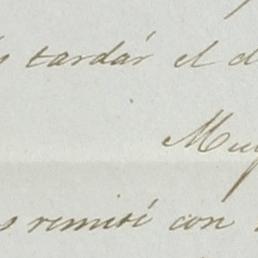 s tardár el d
Muy
s remití con